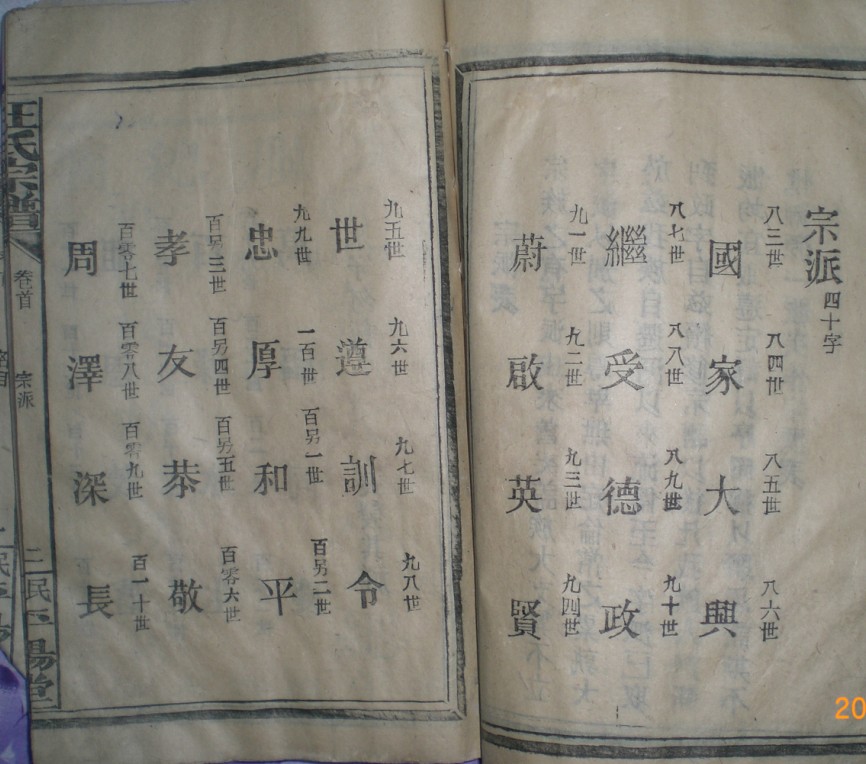 宗派 四十字
八三世 八四世 八五世 八六世
國 家 大 興
八七世 八八世 八九世 九十世
繼 受 德 政
九一世 九二世 九三世 九四世
蔚 啟 英 賢
九五世 九六世 九七世 九八世
世 遵 訓 令
九九世 一百世 百另一世 百另二世
忠 厚 和 平
百另三世 百另四世 百另五世 百零六世
孝 友 恭 敬
百零七世 百零八世 百零九世 百一十世
周 澤 深 長
氏宗譜 卷首 宗派 二
20